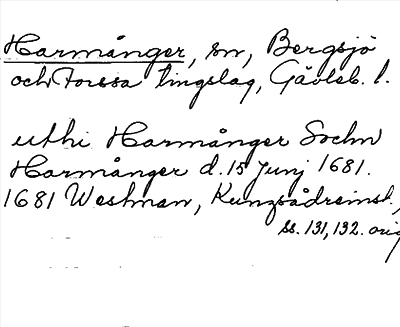 Harmånger, sn, Bergsjö
och Forssa tingslag, Gävleb. l.
uthi Harmånger Sochn
Harmånger d. 15 Junj 1681.
1681 Westman, Kunzrådreinst.,
ss. 131, 132. orig